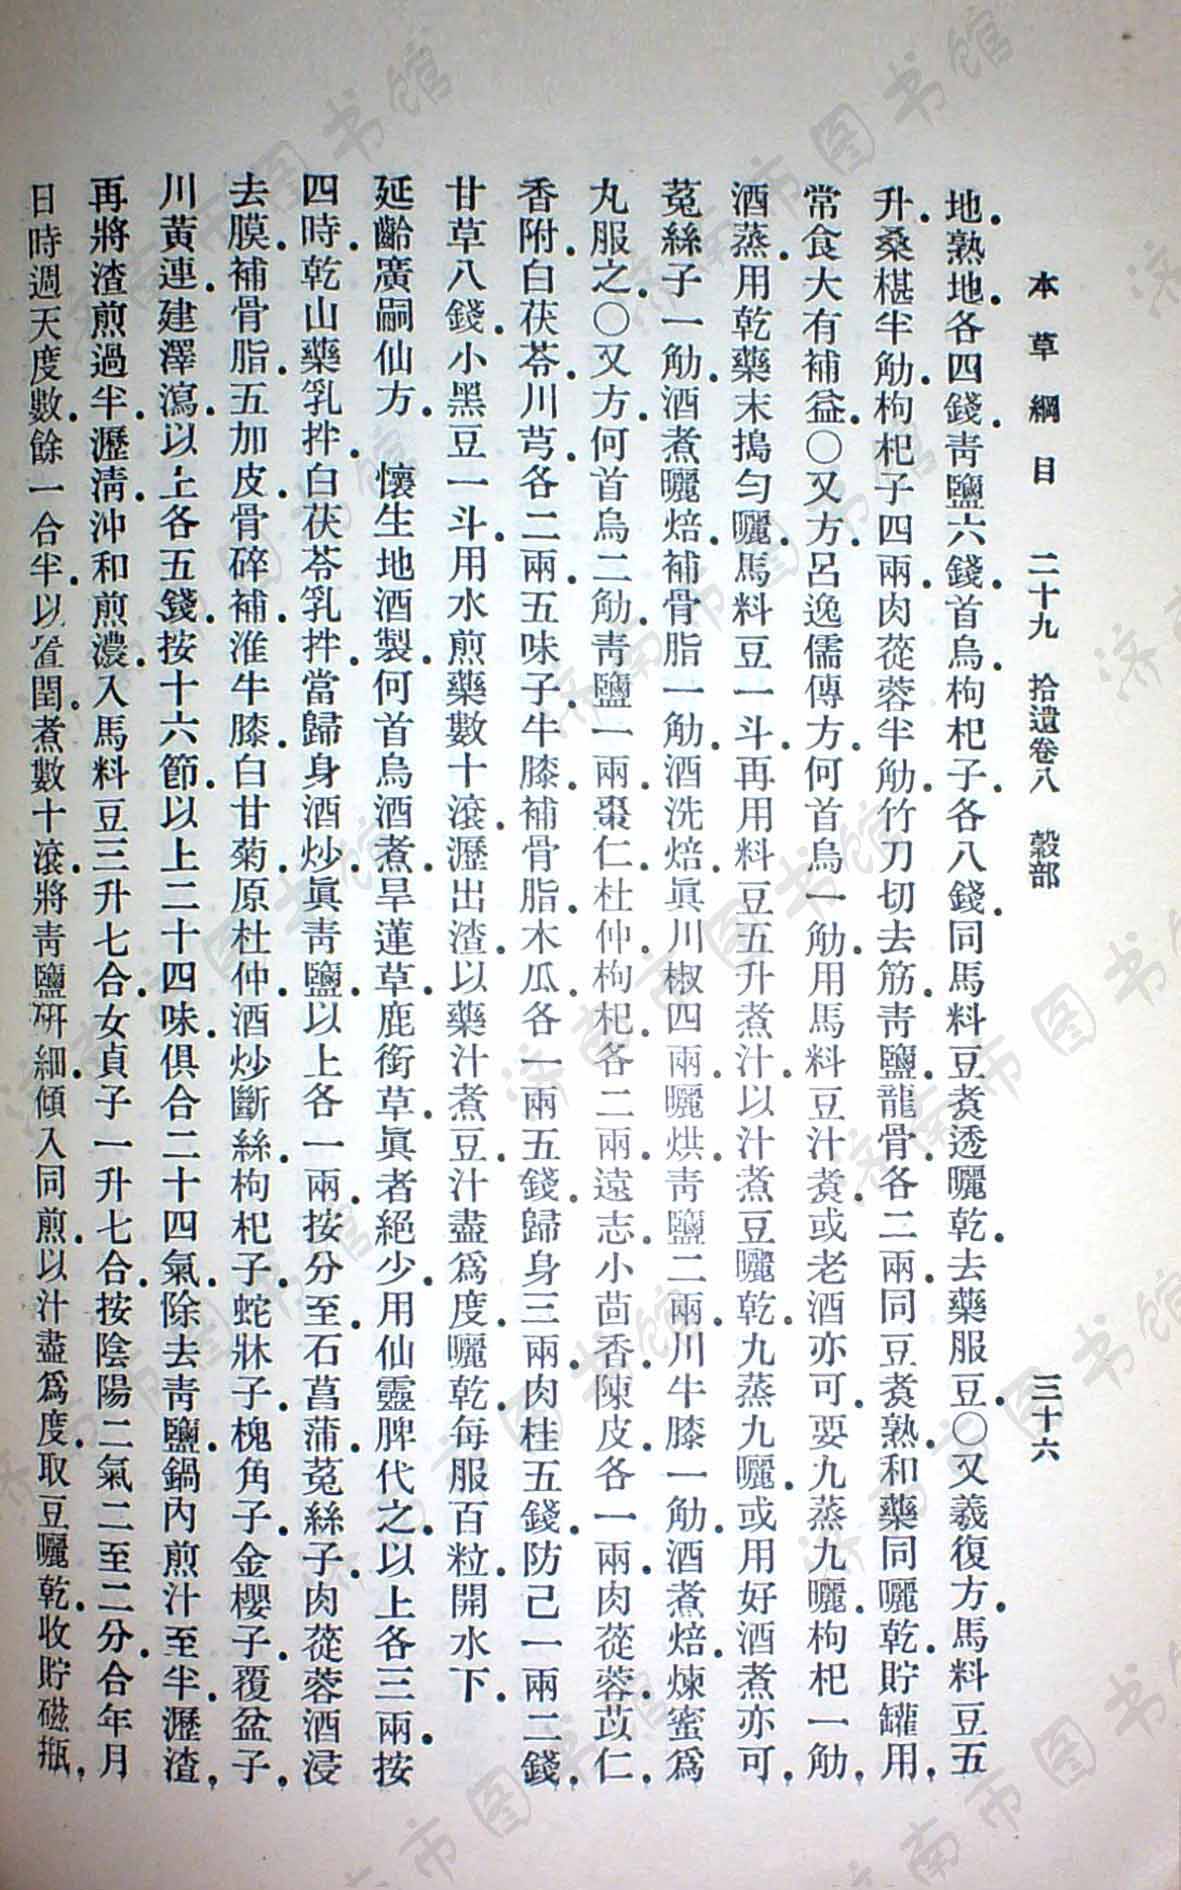 本草綱目 二十九 拾遺卷八 穀部 三十六
地。熟地。各四錢。靑鹽六錢。首烏。枸杞子。各八錢。同馬料豆煑透曬乾。去藥服豆。〇又羲復方。馬料豆五
升。桑椹半觔。枸杞子四兩。肉蓯蓉半觔。竹刀切去筋。靑鹽。龍骨。各二兩。同豆煑熟。和藥同曬乾。貯罐用。
常食大有補益。〇又方。呂逸儒傳方。何首烏一觔。用馬料豆汁煑。或老酒亦可。要九蒸九曬。枸杞一觔。
酒蒸。用乾藥末搗勻曬。馬料豆一斗。再用料豆五升煮汁。以汁煮豆曬乾。九蒸九曬。或用好酒煮亦可。
菟絲子一觔。酒煮曬焙。補骨脂一觔。酒洗焙。眞川椒四兩。曬烘。靑鹽二兩。川牛膝一觔。酒煮焙。煉蜜爲
丸服之。〇又方。何首烏二觔。靑鹽一兩。棗仁。杜仲。枸杞。各二兩。遠志。小茴香。陳皮。各一兩。肉蓯蓉。苡仁。
香附。白茯苓。川芎。各二兩。五味子。牛膝。補骨脂。木瓜。各一兩五錢。歸身三兩。肉桂五錢。防己一兩二錢。
甘草八錢。小黑豆一斗。用水煎藥數十滾。瀝出渣。以藥汁煮豆。汁盡爲度。曬乾。每服百粒。開水下。
延齡廣嗣仙方。 懷生地酒製。何首烏酒煮。旱蓮草。鹿銜草。眞者絕少。用仙靈脾代之。以上各三兩。按
四時。乾山藥乳拌。白茯苓乳拌。當歸身酒炒。眞靑鹽。以上各一兩。按分至。石菖蒲。菟絲子。肉蓯蓉酒浸
去膜。補骨脂。五加皮。骨碎補。淮牛膝。白甘菊。原杜仲。酒炒斷絲。枸杞子。蛇牀子。槐角子。金櫻子。覆盆子。
川黃連。建澤瀉。以上各五錢。按十六節。以上二十四味。俱合二十四氣。除去靑鹽。鍋內煎汁至半。瀝渣。
再將渣煎過半。瀝淸。沖和煎濃。入馬料豆三升七合。女貞子一升七合。按陰陽二氣。二至二分。合年月
日時週天度數。餘一合半。以置閏。煮數十滾。將靑鹽硏細。傾入同煎。以汁盡爲度。取豆曬乾。收貯磁甁。